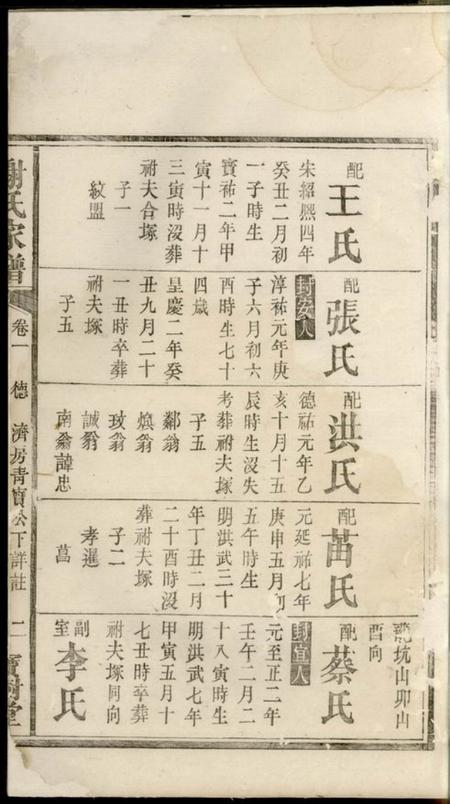 配王氏
朱紹熙四年
癸丑二月初
一子時生
寶祐二年甲
寅十一月十
三寅時没葬
祔夫合塚
子一
紋盟
配張氏
封安人
淳祐元年庚
子六月初六
酉時生七十
四歲
皇慶二年癸
丑九月二十
一丑時卒葬
祔夫塚
子五
配洪氏
德祐元年乙
亥十月十五
辰時生没失
考葬祔夫塚
子五
鄰翁
煥翁
玫翁
誠翁
南翁諱忠
配苗氏
元延祐七年
庚申五月初
五午時生
明洪武三十
年丁丑二月
二十酉時没
葬祔夫塚
子二
孝暹
菖
龍坑山卯山
酉向
配蔡氏
封宜人
元至正二年
壬午二月二
十八寅時生
明洪武七年
甲寅五月十
七丑時卒葬
祔夫塚同向
副室李氏
謝氏家譜
卷一
德
濟房青寶公下詳註
二
寶樹堂